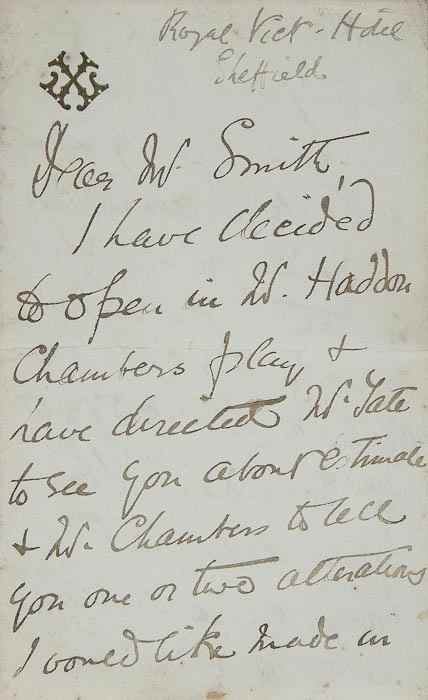 Royal Vict. Hotel
Sheffield
Dear Mr. Smith,
I have decided
to open in Mr. Haddon
Chambers play &
have directed Mr. Tate
to see you about estimate
& Mr. Chambers to tell
you one or two alterations
I would like made in